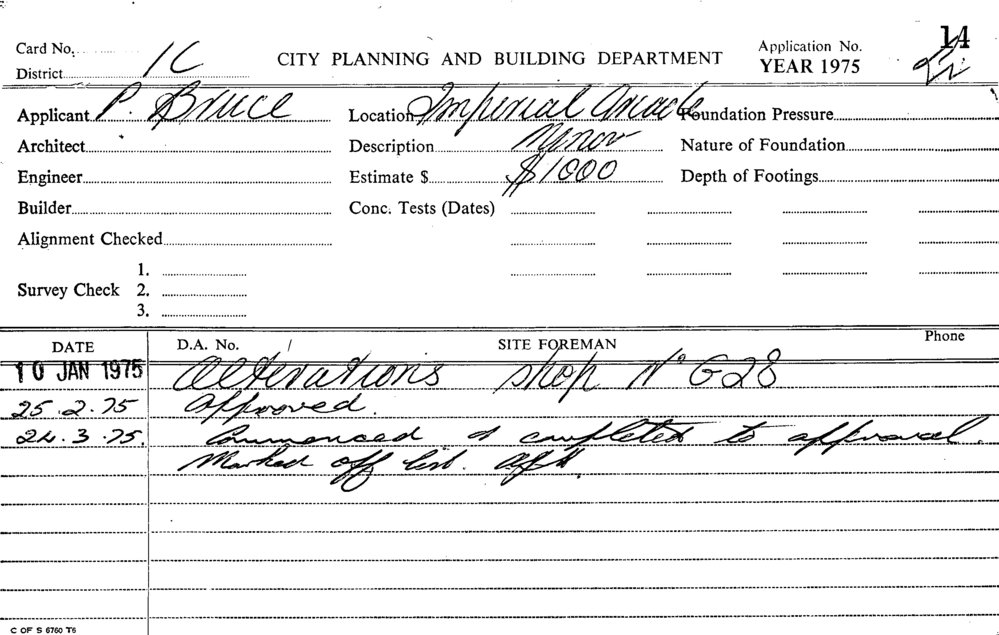 Card No. 14
District 1C CITY PLANNING AND BUILDING DEPARTMENT Application No. YEAR 1975
Applicant P. Bruce Location Imperial Arcade Foundation Pressure
Architect Description Minor Nature of Foundation
Engineer Estimate $ $1000 Depth of Footings
Builder Conc. Tests (Dates)
Alignment Checked
1.
Survey Check 2.
3.
DATE D.A. No. / SITE FOREMAN Phone
10 JAN 1975 Alterations shop No G28
25.2.75 Approved.
24.3.75. Commenced & completed to approval.
Marked off list.
C OF S 6760 T6